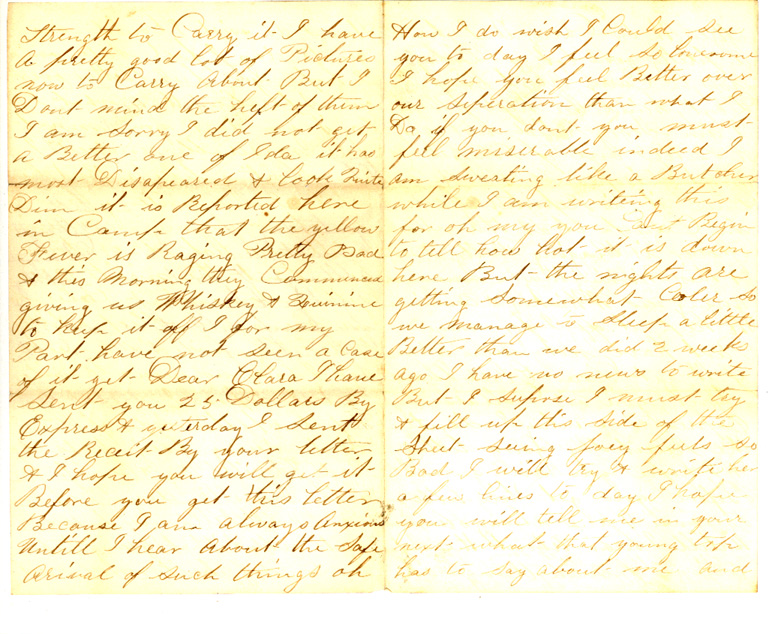 Strength to Carry it I have
a pretty good lot of Pictures
now to Carry About But I
Dont mind the heft of them
I am sorry I did not get
a Better one of Ida it has
most Disapeared & look Quite
Dim it is Reported here
in Camp that the yellow
Fever is Raging Pretty Bad
& this Morning they Commenced
giving us Whiskey & Quinine
to keep it off I for my
Part have not seen a Case
of it yet Dear Clara I have
Sent you 25 Dollars By
Express & yesterday I Sent
the Receit By your letter
& I hope you will get it
Before you get this letter
Because I am always Anxious
Untill I hear About the Safe
arival of such things oh
How I do wish I Could see
you to day I feel so lonesome
I hope you feel Better over
our Seperation than what I
Do if you dont you must
feel miserable indeed I
am sweating like a Butcher
while I am writing this
for oh my you Begin
to tell how hot it is down
here But the nights are
getting Somewhat Cooler so
we manage to Sleep a Little
Better than we did 2 weeks
ago I have no news to write
But I suprose I must try
& fill up this side of the
Sheet seing feels so
Bad I will try & write her
a few lines to day I hope
you will tell me in your
next what that young
has to say about me and